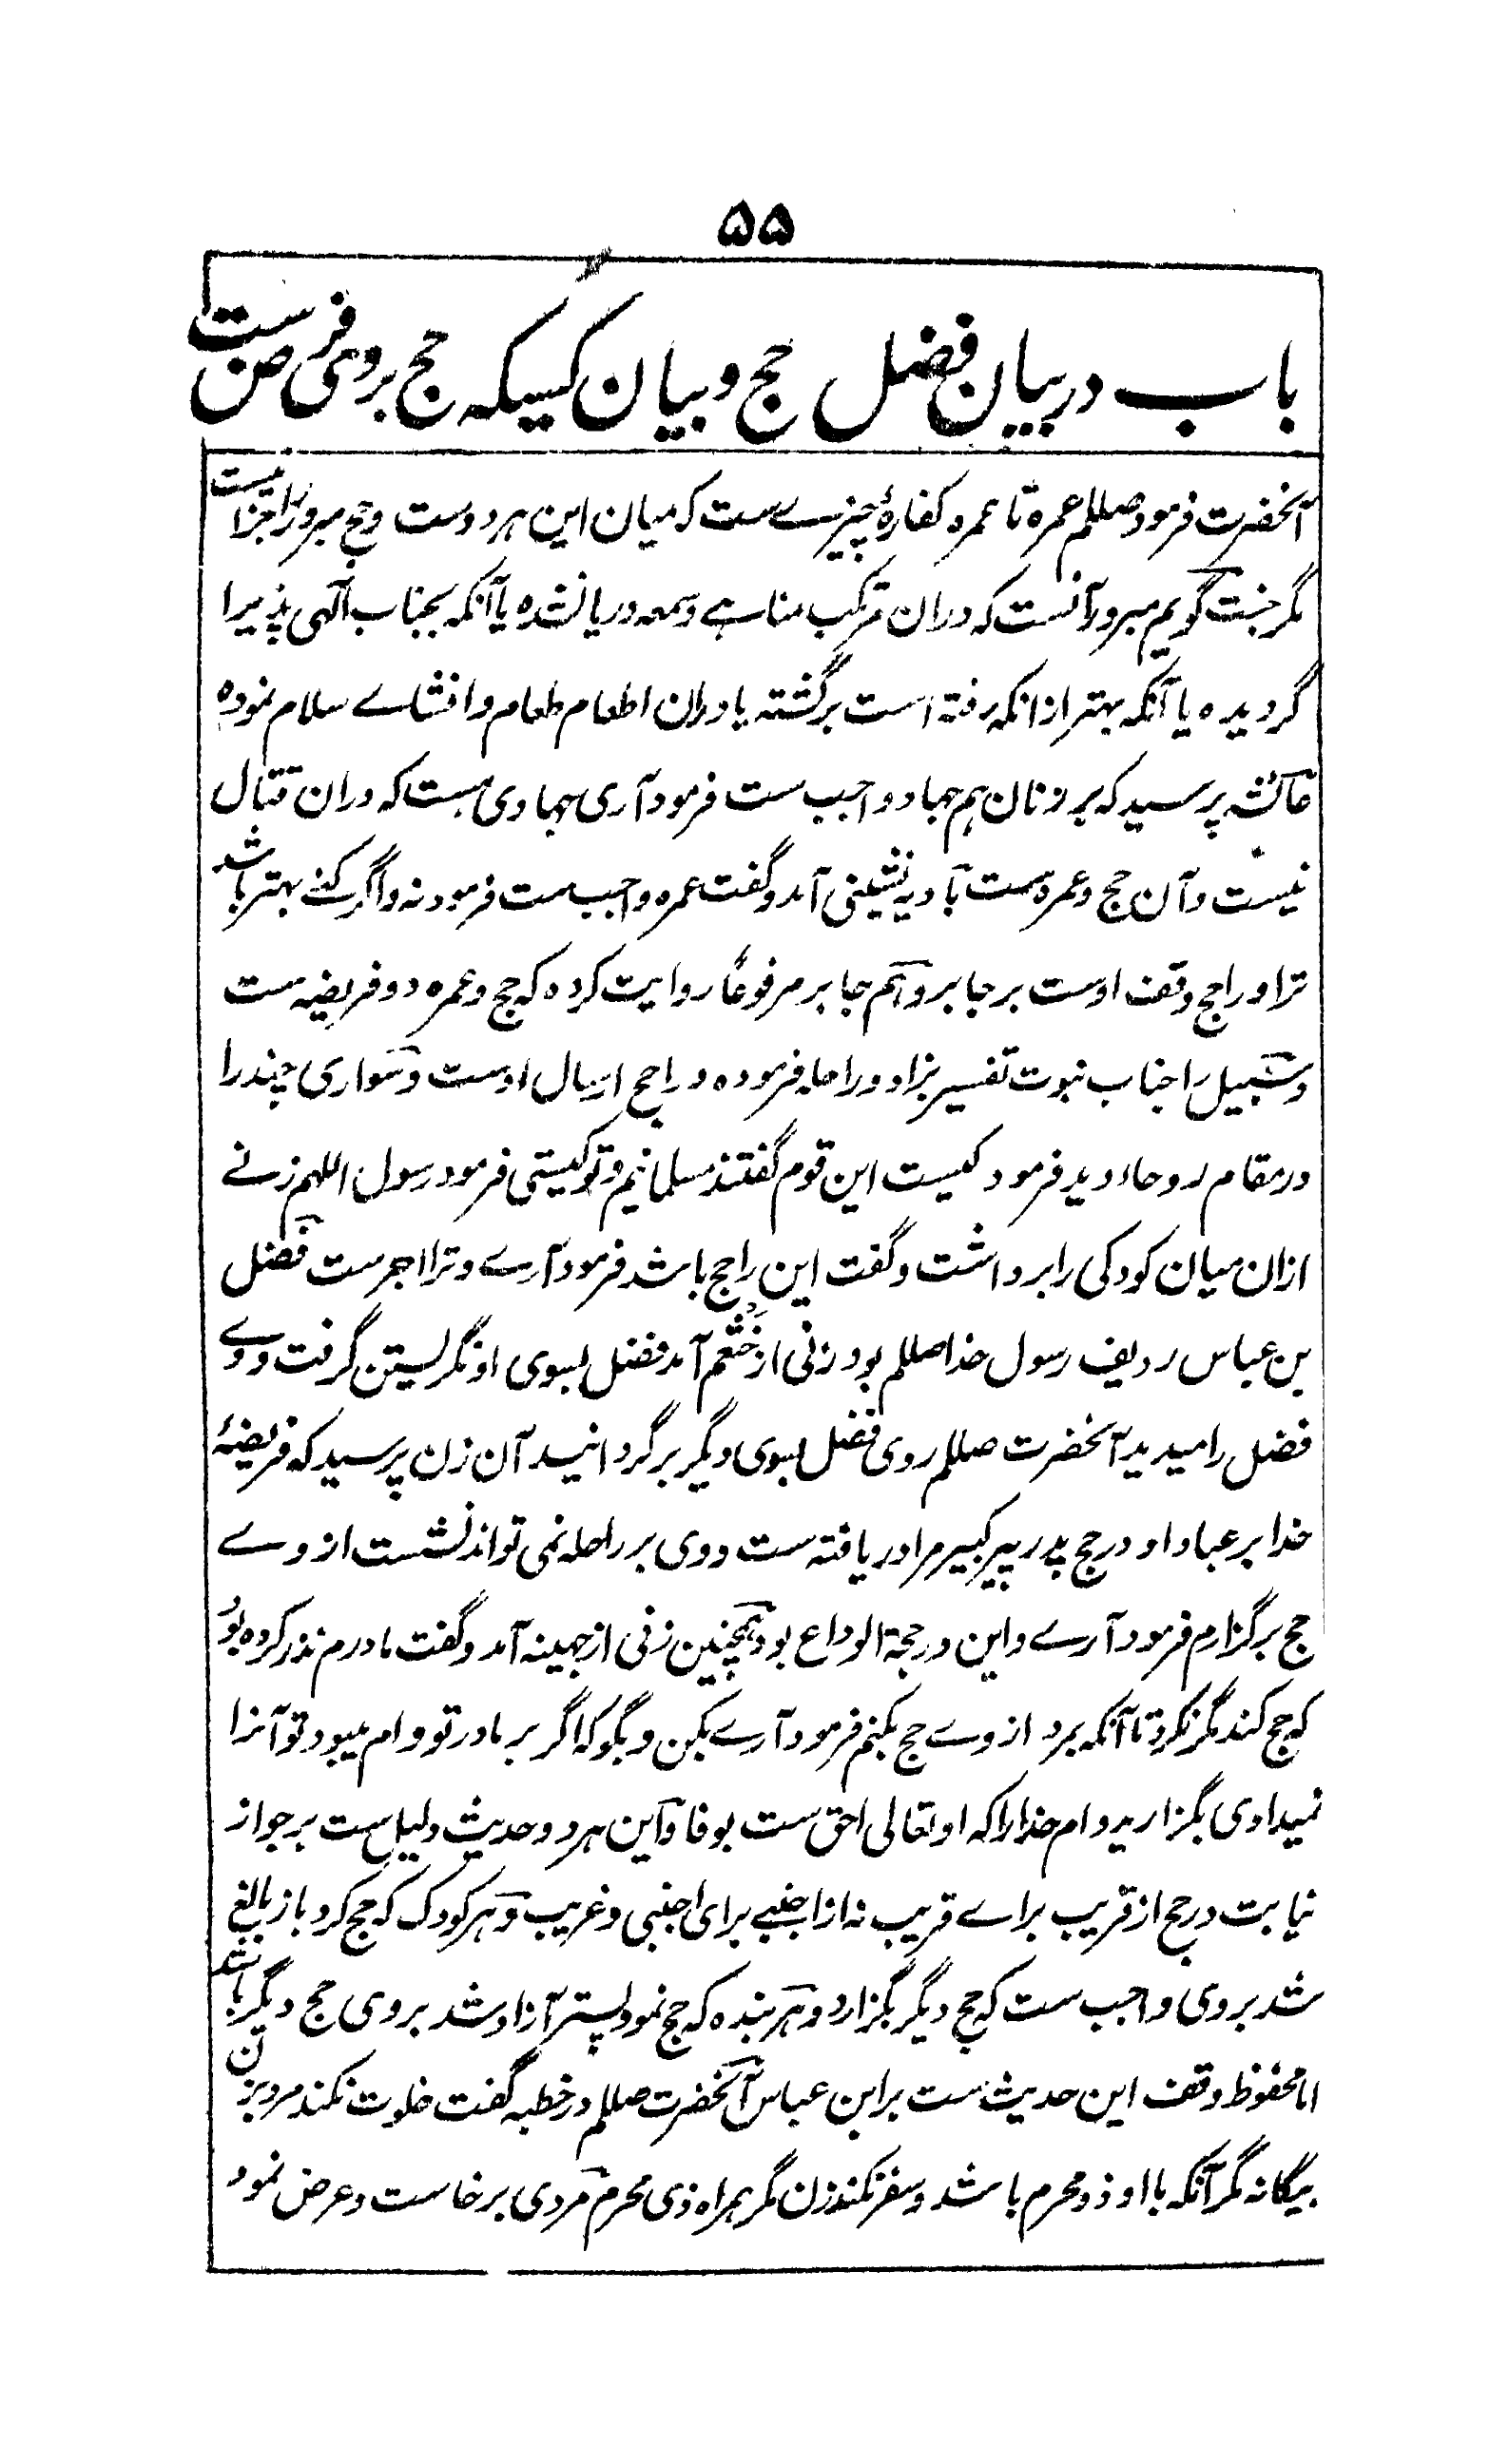 ۵۵
باب در بیان فضل حج و بیان کسیکه حج بروی فرض ست
آنحضرت فرمود صللم عمره تا عمره کفارهٔ چیزے ست که میان این هر دوست و حج مبرور را جزا نیست
مگر جنت گویم مبرور آنست که دران مرتکب مناهے و سمعه و ریا نشده یا آنکه بجناب الٰهی پذیرا
گردیده یا آنکه بهتر ازانکه رفته است برگشته یا دران اطعام طعام و افشاے سلام نموده
عائشه پرسید که بر زنان هم جهاد واجب ست فرمود آری جهادی هست که دران قتال
نیست و آن حج و عمره ست بادیه نشینی آمد و گفت عمره واجب ست فرمود نه و اگر کنے بهتر باشد
ترا و راجح وقف اوست بر جابر و هم جابر مرفوعًا روایت کرده که حج و عمره دو فریضه ست
و سبیل را جناب نبوت تفسیر بزاد و راحله فرموده و راجح ارسال اوست و سواری چند را
در مقام روحاء دید فرمود کیست این قوم گفتند مسلمانیم و تو کیستی فرمود رسول اللهم زنے
ازان میان کودکی را برداشت و گفت این را حج باشد فرمود آرے و ترا اجرست فضل
بن عباس ردیف رسول خدا صللم بود زنی از خثعم آمد فضل بسوی او نگریستن گرفت و وے
فضل را میدید آنحضرت صللم روی فضل بسوی دیگر برگردانید آن زن پرسید که فریضهٔ
خدا بر عباد او در حج پدر پیر کبیر مرا دریافته ست و وی بر راحله نمی تواند نشست از وے
حج برگزارم فرمود آرے و این در حجة الوداع بود همچنین زنی از جهینه آمد و گفت مادرم نذر کرده بود
که حج کند مگر نکرد تا آنکه بمرد از وے حج بکنم فرمود آرے بکن و بگو که اگر بر مادر تو وام میبود تو آنرا
نمیدادی بگزارید وام خدا را که او تعالی احق ست بوفا و این هر دو حدیث دلیل ست بر جواز
نیابت در حج از قریب براے قریب نه از اجنبے برای اجنبی و غریب و هر کودک که حج کرد باز بالغ
شد بروی واجب ست که حج دیگر بگزارد و هر بنده که حج نمود پستر آزاد شد بروی حج دیگر باشد
اما محفوظ وقف این حدیث ست بر ابن عباس آنحضرت صللم در خطبه گفت خلوت نکند مرد بزن
بیگانه مگر آنکه با او ذو محرم باشد و سفر نکند زن مگر همراه ذی محرم مردی برخاست و عرض نمود